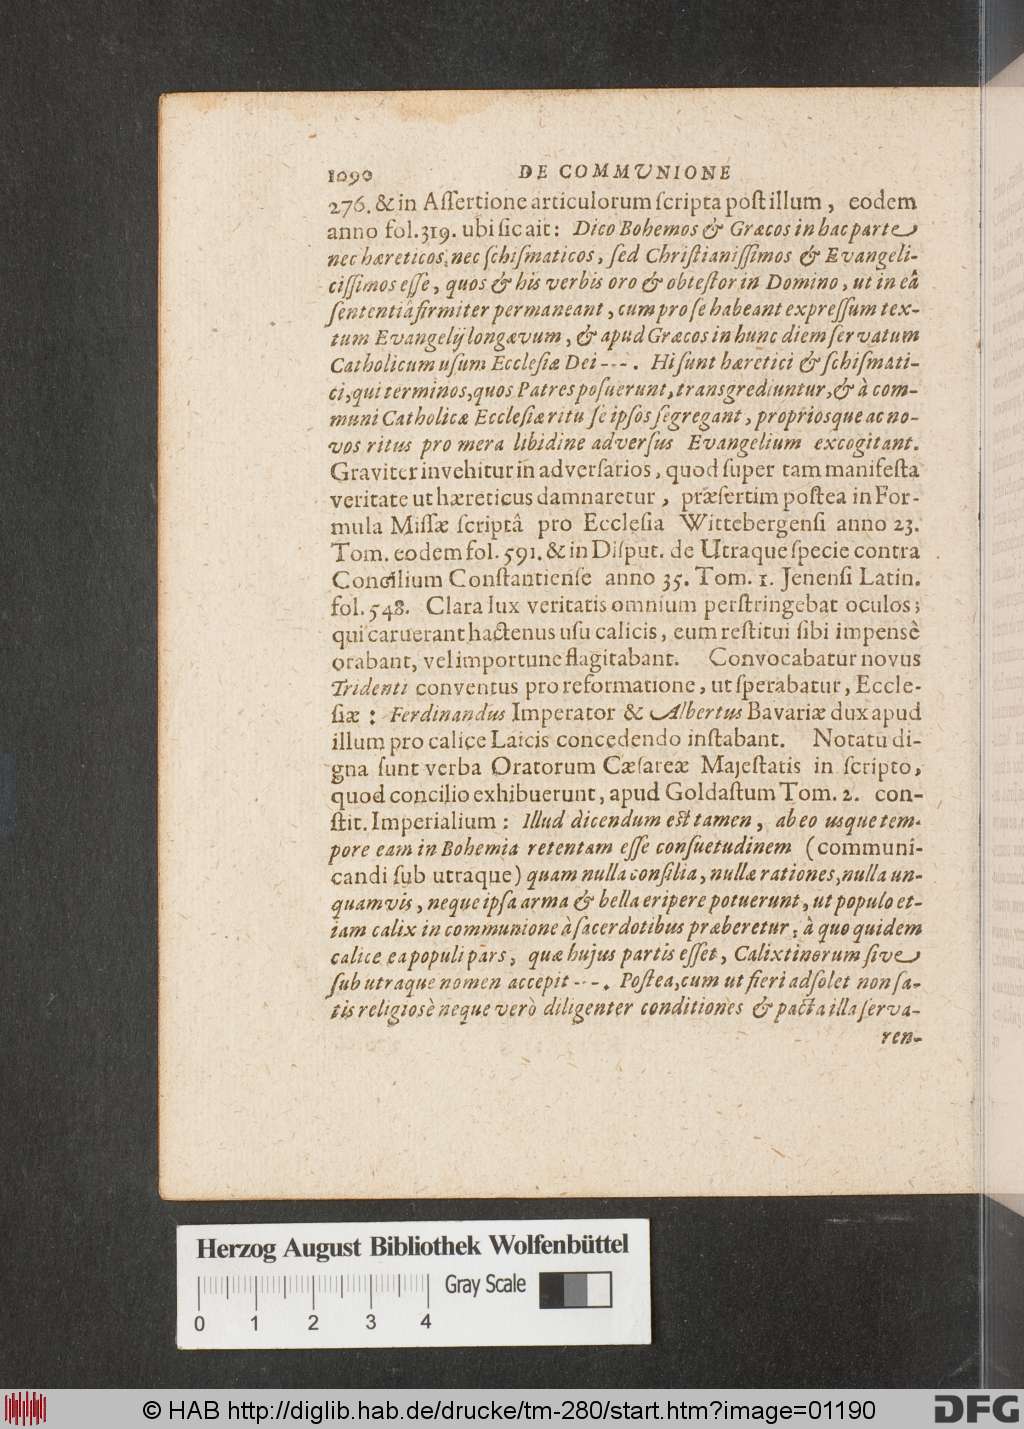 1090 DE COMMVNIONE
276. & in Aſſertione articulorum ſcripta poſt illum, eodem
anno fol. 319. ubi ſic ait: Dico Bohemos & Græcos in hac parte
nec hæreticos, nec ſchiſmaticos, ſed Chriſtianiſſimos & Evangeli-
ciſſimos eſſe, quos & his verbis oro & obteſtor in Domino, ut in eâ
ſententiâ firmiter permaneant, cum pro ſe habeant expreſſum tex-
tum Evangelij longævum, & apud Græcos in hunc diem ſervatum
Catholicum uſum Eccleſiæ Dei ---. Hi ſunt hæretici & ſchiſmati-
ci, qui terminos, quos Patres poſuerunt, transgrediuntur, & à com-
muni Catholicæ Eccleſiæ ritu ſe ipſos ſegregant, propriosque ac no-
vos ritus pro mera libidine adverſus Evangelium excogitant.
Graviter invehitur in adverſarios, quod ſuper tam manifeſta
veritate ut hæreticus damnaretur, præſertim poſtea in For-
mula Miſſæ ſcriptâ pro Eccleſia Wittebergenſi anno 23.
Tom. eodem fol. 591. & in Diſput. de Utraque ſpecie contra
Concilium Conſtantienſe anno 35. Tom. 1. Jenenſi Latin.
fol. 548. Clara lux veritatis omnium perſtringebat oculos;
qui caruerant hactenus uſu calicis, eum reſtitui ſibi impensè
orabant, vel importune flagitabant. Convocabatur novus
Tridenti conventus pro reformatione, ut ſperabatur, Eccle-
ſiæ: Ferdinandus Imperator & Albertus Bavariæ dux apud
illum pro calice Laicis concedendo inſtabant. Notatu di-
gna ſunt verba Oratorum Cæſareæ Majeſtatis in ſcripto,
quod concilio exhibuerunt, apud Goldaſtum Tom. 2. con-
ſtit. Imperialium: Illud dicendum eſt tamen, ab eo usque tem-
pore eam in Bohemia retentam eſſe conſuetudinem (communi-
candi ſub utraque) quam nulla conſilia, nullæ rationes, nulla un-
quam vis, neque ipſa arma & bella eripere potuerunt, ut populo et-
iam calix in communione à ſacerdotibus præberetur, à quo quidem
calice ea populi pars, quæ hujus partis eſſet, Calixtinorum ſive
ſub utraque nomen accepit ---. Poſtea, cum ut fieri adſolet non ſa-
tis religiosè neque verò diligenter conditiones & pacta illa ſerva-
ren-
Herzog August Bibliothek Wolfenbüttel
Gray Scale
0 1 2 3 4
© HAB http://diglib.hab.de/drucke/tm-280/start.htm?image=01190
DFG